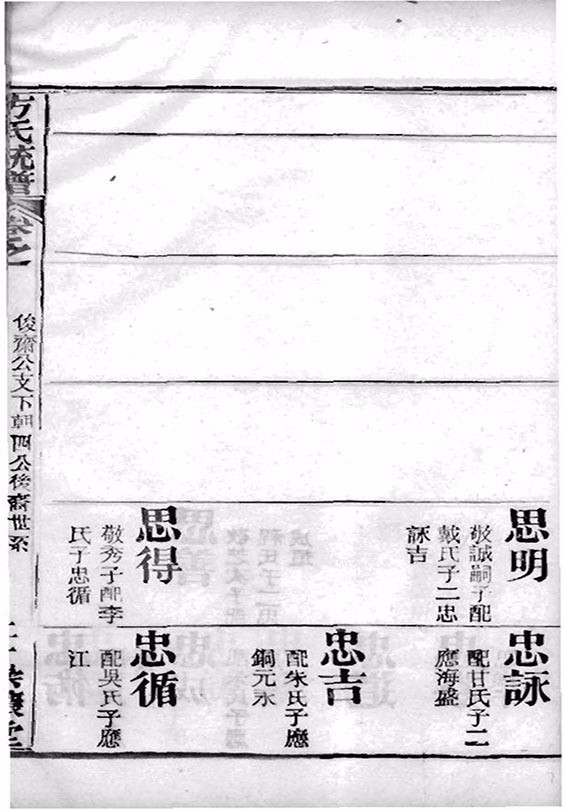 思明
敬誠嗣子配
戴氏子二忠
詠吉
思得
敬秀子配李
氏子忠循
忠詠
配甘氏子二
應海盛
忠吉
配朱氏子應
銅元永
忠循
配吳氏子應
江
方氏統譜
卷之
俊齋公支下朝四公後裔世系